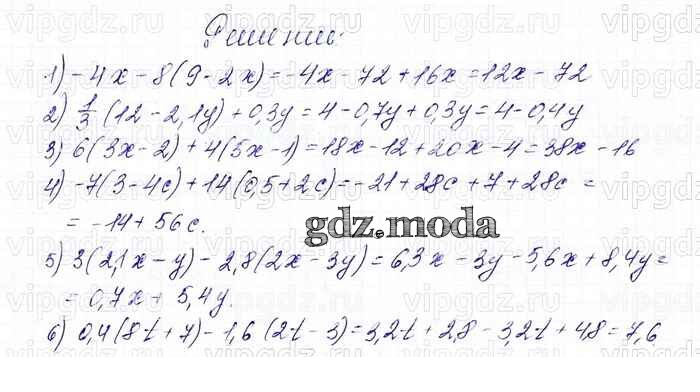 Решение:
1) -4x - 8(9 - 2x) = -4x - 72 + 16x = 12x - 72
2) 1/3 (12 - 2,1y) + 0,3y = 4 - 0,7y + 0,3y = 4 - 0,4y
3) 6(3x - 2) + 4(5x - 1) = 18x - 12 + 20x - 4 = 38x - 16
4) -7(3 - 4c) + 14(0,5 + 2c) = -21 + 28c + 7 + 28c =
= -14 + 56c.
gdz.moda
5) 3(2,1x - y) - 2,8(2x - 3y) = 6,3x - 3y - 5,6x + 8,4y =
= 0,7x + 5,4y.
6) 0,4(8t + 7) - 1,6(2t - 3) = 3,2t + 2,8 - 3,2t + 4,8 = 7,6
vipgdz.com